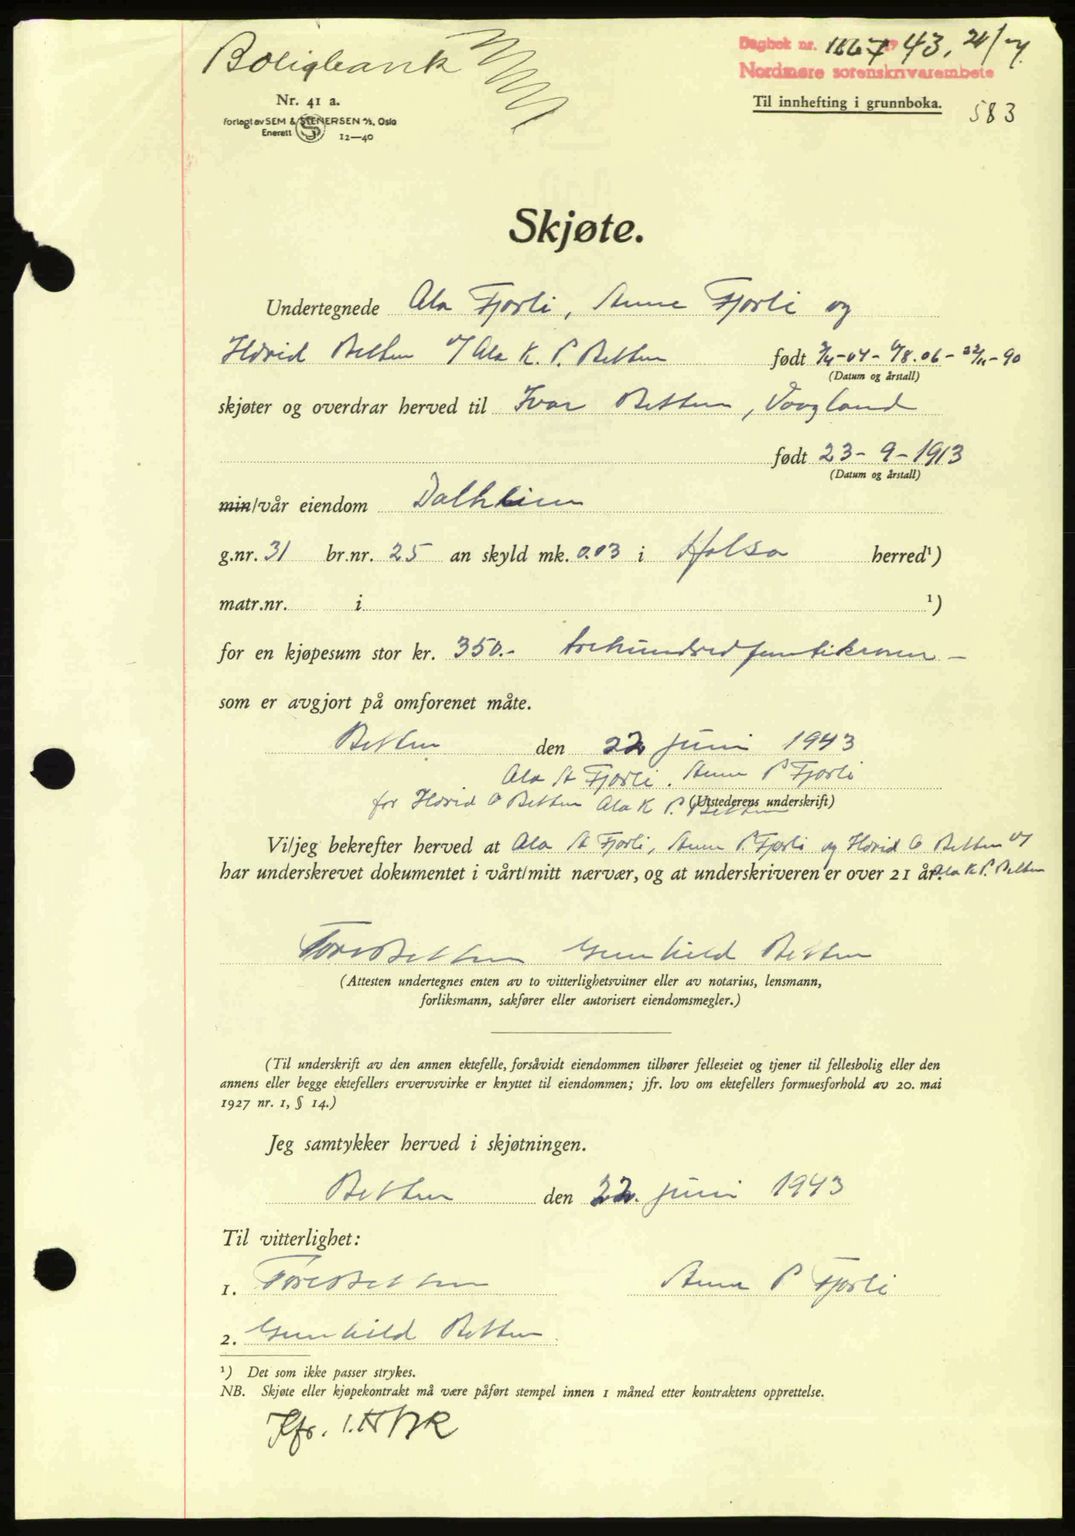 Boligbank
Dagbok nr. 1667 43, 21/7
Nordmøre sorenskrivarembete
Nr. 41 a.
Til innhefting i grunnboka.
583
Forlagt av SEM & STENERSEN A/S, Oslo
Enerett 12—40
Skjøte.
Undertegnede Ola Fjorli, Anne Fjorli og
Hovid Betten v/ Ola K. P. Betten født 3/4-04- 4/8.06- 22/11-90
(Datum og årstall)
skjøter og overdrar herved til Ivar Betten, Vaagland
født 23-9-1913
(Datum og årstall)
min/vår eiendom Dalheim
g.nr. 31 br.nr. 25 an skyld mk. 0.03 i Halsa herred¹)
matr.nr. i ¹)
for en kjøpesum stor kr. 350.- trehundredfemtikroner —
som er avgjort på omforenet måte.
Betten den 22 juni 1943
Ola A Fjorli. Anne P Fjorli
for Hovid O Betten Ola K P. Betten (Utstederens underskrift)
Vi/jeg bekrefter herved at Ola A Fjorli, Anne P. Fjorli og Hovid O. Betten v/
har underskrevet dokumentet i vårt/mitt nærvær, og at underskriveren er over 21 år. Ola K P. Betten
Tore Betten Gunhild Betten
(Attesten undertegnes enten av to vitterlighetsvitner eller av notarius, lensmann,
forliksmann, sakfører eller autorisert eiendomsmegler.)
(Til underskrift av den annen ektefelle, forsåvidt eiendommen tilhører felleseiet og tjener til fellesbolig eller den
annens eller begge ektefellers ervervsvirke er knyttet til eiendommen; jfr. lov om ektefellers formuesforhold av 20. mai
1927 nr. 1, § 14.)
Jeg samtykker herved i skjøtningen.
Betten den 22. juni 1943
Til vitterlighet:
1. Tore Betten Anne P Fjorli
2. Gunhild Betten
¹) Det som ikke passer strykes.
NB. Skjøte eller kjøpekontrakt må være påført stempel innen 1 måned etter kontraktens opprettelse.